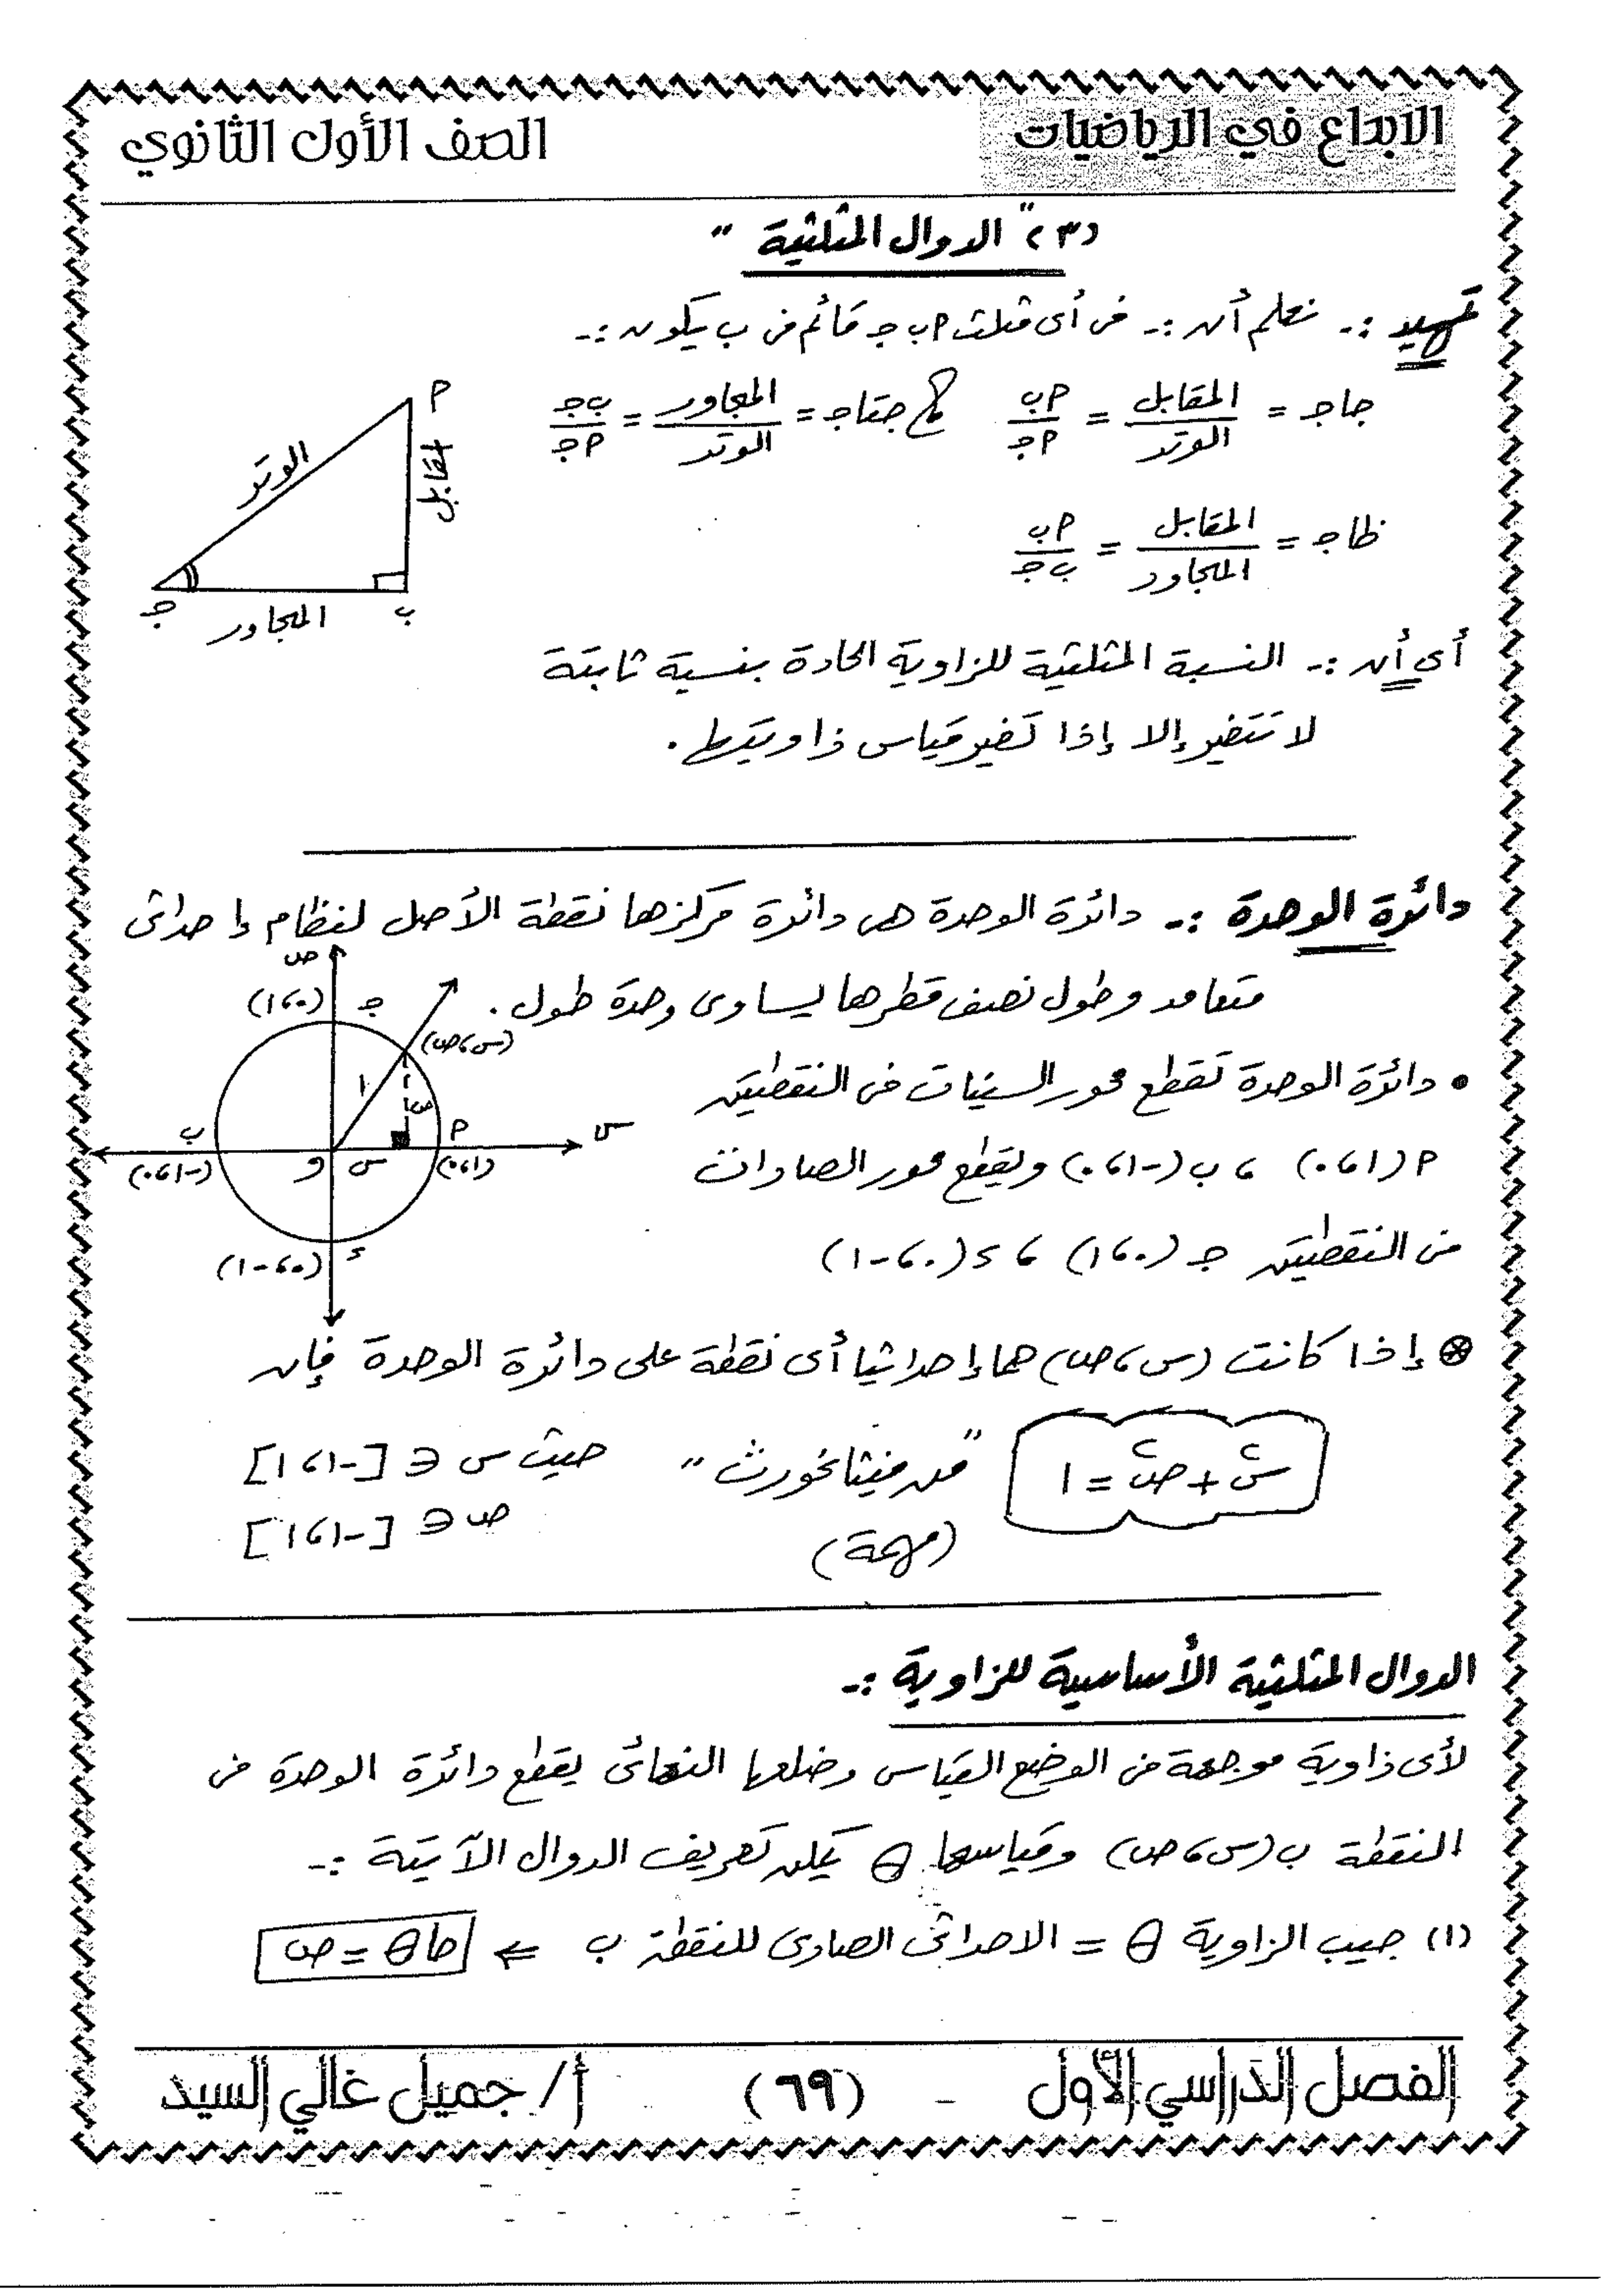 الابداع في الرياضيات
الصف الأول الثانوي
(٣) " الدوال المثلثية "
تمهيد :- نعلم أن :- فى أى مثلث ٩ب جـ قائم فى ب يكون :-
جاجـ = المقابل / الوتر = ٩ب / ٩جـ ، جتاجـ = المجاور / الوتر = ب جـ / ٩جـ
ظاجـ = المقابل / المجاور = ٩ب / ب جـ
٩
الوتر
مقابل
جـ
المجاور
ب
أى أن :- النسبة المثلثية للزاوية الحادة بنسبة ثابتة
لا تتغير إلا إذا تغير قياس زاويتها .
دائرة الوحدة :- دائرة الوحدة هى دائرة مركزها نقطة الأصل لنظام إحداثى
متعامد وطول نصف قطرها يساوى وحدة طول .
• دائرة الوحدة تقطع محور السينات فى النقطتين
٩(١،٠) ، ب(-١،٠) وتقطع محور الصادات
فى النقطتين جـ(٠،١) ، د(٠،-١)
ص
(٠،١)
جـ
(س،ص)
١
ص
ب
٩
س
(-١،٠)
و
س
(١،٠)
(٠،-١)
د
⊛ إذا كانت (س،ص) هما إحداثيا أى نقطة على دائرة الوحدة فإن
س٢ + ص٢ = ١ " من فيثاغورث " حيث س ∈ [-١،١]
(مهمة) ص ∈ [-١،١]
الدوال المثلثية الأساسية للزاوية :-
لأى زاوية موجهة فى الوضع القياسى وضلعها النهائى يقطع دائرة الوحدة فى
النقطة ب(س،ص) وقياسها θ يمكن تعريف الدوال الآتية :-
(١) جيب الزاوية θ = الاحداثى الصادى للنقطة ب ⇐ حا θ = ص
الفصل الدراسي الأول - (٦٩) أ/ جميل غالي السيد